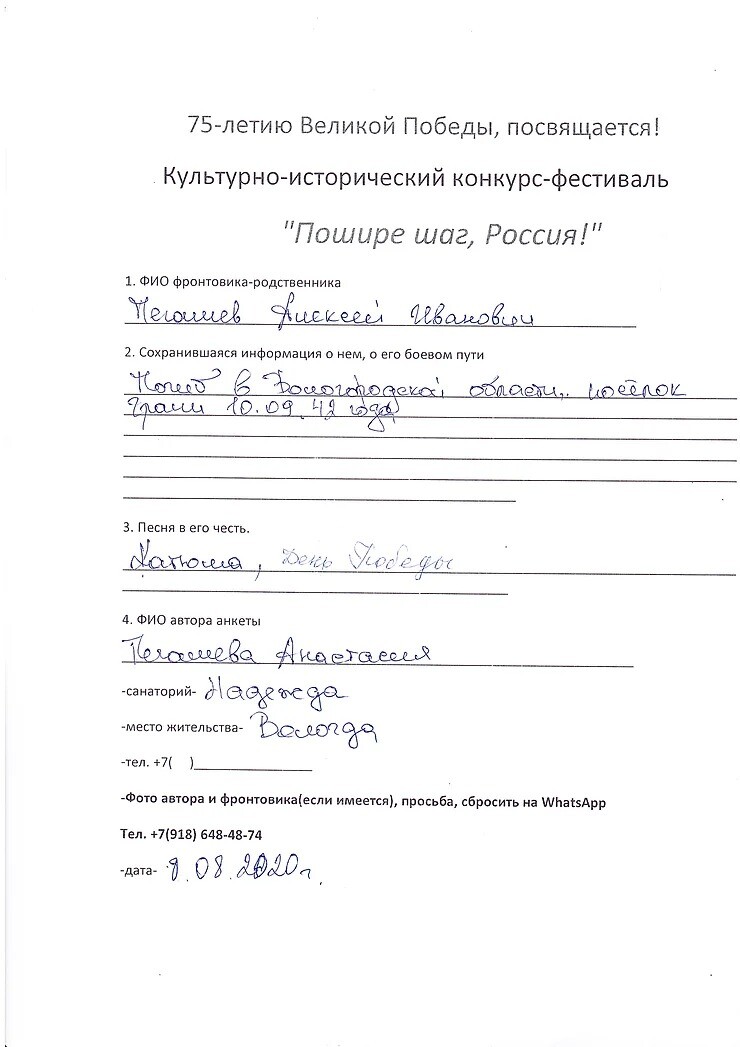 75-летию Великой Победы, посвящается!
Культурно-исторический конкурс-фестиваль
"Пошире шаг, Россия!"
1. ФИО фронтовика-родственника
Алексей Иванович
2. Сохранившаяся информация о нем, о его боевом пути
Погиб в области, посёлок
10.09.42 года
3. Песня в его честь.
Катюша, День Победы
4. ФИО автора анкеты
Анастасия
-санаторий- Надежда
-место жительства- Вологда
-тел. +7( )_______________
-Фото автора и фронтовика(если имеется), просьба, сбросить на WhatsApp
Тел. +7(918) 648-48-74
-дата- 08.2020г.